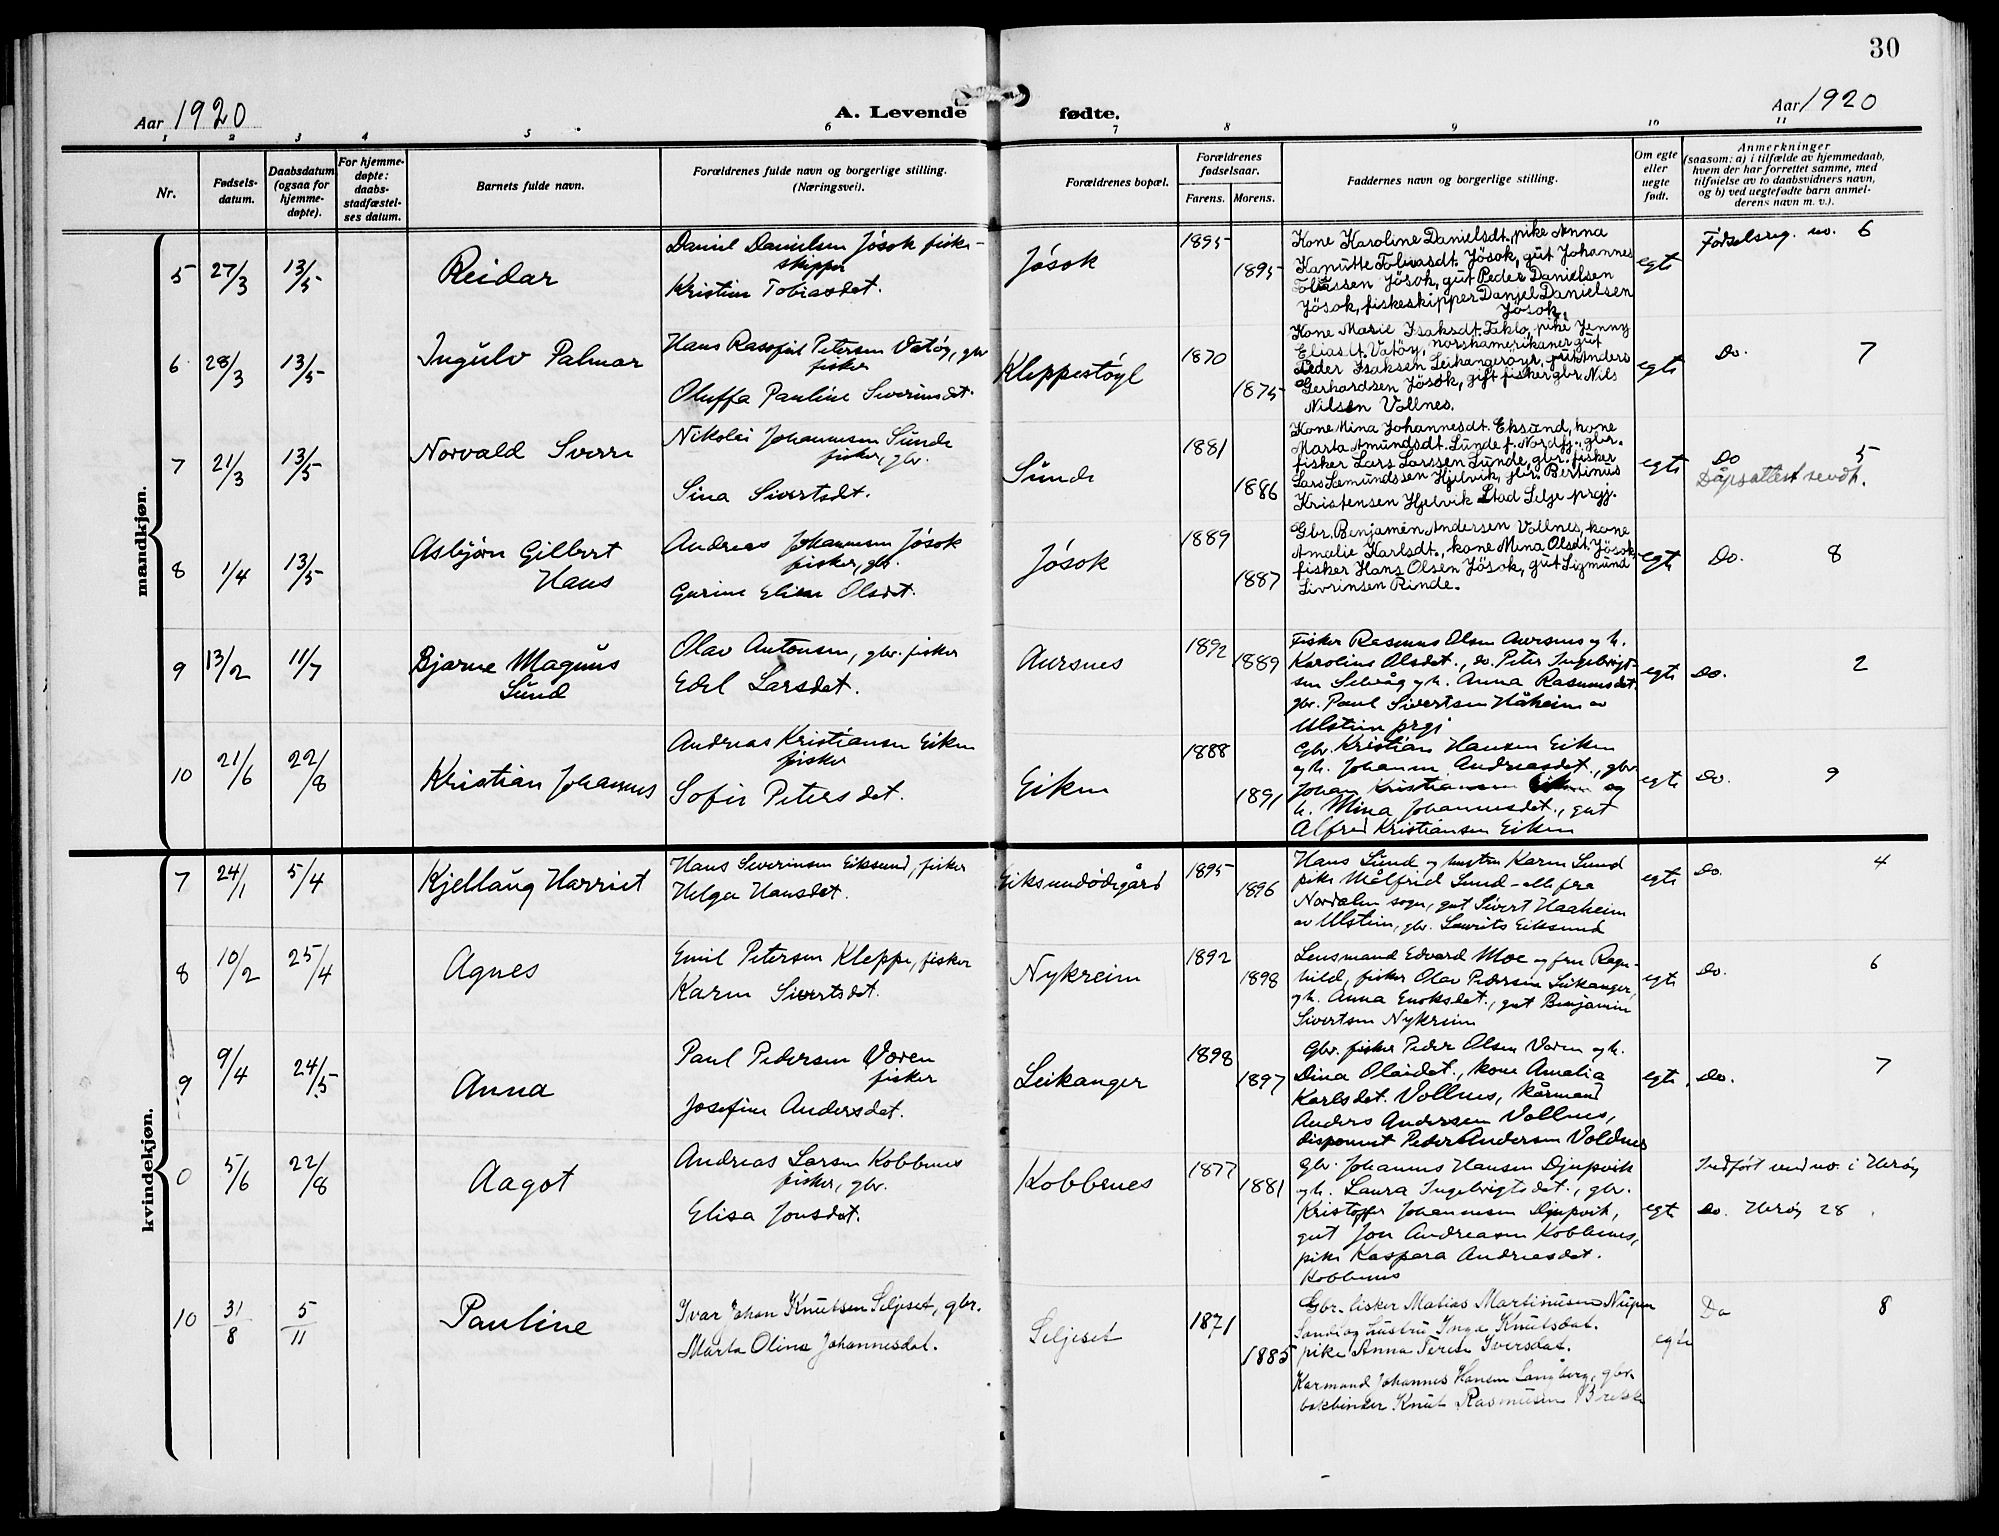 30
Aar 1920
A. Levende fødte.
Aar 1920
1 2 3 4 5 6 7 8 9 10 11
Nr.
Fødsels-
datum.
Daabsdatum
(ogsaa for
hjemme-
døpte).
For hjemme-
døpte:
daabs-
stadfæstel-
ses datum.
Barnets fulde navn.
Forældrenes fulde navn og borgerlige stilling.
(Næringsvei).
Forældrenes bopæl.
Forældrenes
fødselsaar.
Farens. Morens.
Faddernes navn og borgerlige stilling.
Om egte
eller
uegte
født.
Anmerkninger
(saasom: a) i tilfælde av hjemmedaab,
hvem der har forrettet samme, med
tilføielse av to daabsvidners navn,
og b) ved uegtefødte barn anmel-
derens navn m. v.).
mandkjøn.
5 27/3 13/5 Reidar
Daniel Danielsen Jøsok fiske-
skipper
Kristine Tobiasdet.
Jøsok
1895
1895
Kone Karoline Danielsdt., pike Anna
Tobiasdt. Jösok, gut Johannes
Jösok, gut Peder Danielsen
Jösok, fiskeskipper Daniel Danielsen
Jösok.
egte
Fødselsreg. no. 6
6 28/3 13/5 Ingulv Palmar
Hans Petersen Vatøy, gbr
fisker
Oluffa Pauline Severinsdet.
Kleppestøyl
1870
1875
Kone Marie Isaksdt. Taklo, pike Jenny
Elias dt. Vatöy, norskamerikaner gut
Peder Isaksen Leikangerøyr, gut Anders
Gerhardsen Jösok, gift fisker gbr. Nils
Nilsen Vollnes.
egte
Do. 7
7 21/3 13/5 Norvald Sverre
Nikolai Johannesen Sunde
fisker, gbr.
Sina Sivertsdt.
Sunde
1881
1886
Kone Mina Johannesdt. Eksund, kone
Marta Amundsdt. Sunde f. Nordfj., gbr.
fisker Lars Larssen Sunde, gbr. fisker
Hjelvik, gbr. Bertinus
Kristensen Hjelvik Stad Selje prgj.
egte
Do 5
Dåpsattest sendt.
8 1/4 13/5 Asbjørn Gilbert
Hans
Andreas Johannesen Jøsok
fisker, gbr.
Gurine Eline Olsdet.
Jøsok
1889
1887
Gbr. Benjamin Andersen Vollnes, kone
Amalie Karlsdt., kone Mina Olsdt. Jösok,
fisker Hans Olsen Jösok, gut Sigmund
Sivrinsen Rinde.
egte
Do. 8
9 13/2 11/7 Bjarne Magnus
Sund
Olav Antonsen, gbr. fisker
Edel Larsdet.
Aursnes
1892
1889
Fisker Rasmus Olsen Aursnes og h.
Karoline Olsdet., do. Peter Ingebrigt-
sen Selvåg og h. Anna Rasmusdet.
gbr. Paul Sivertsen Håheim av
Ulstein prgj
egte
Do. 2
10 21/6 22/8 Kristian Johannes
Andreas Kristiansen Eiken
fisker
Sofie Petersdet.
Eiken
1888
1891
Gbr. Kristian Hansen Eiken
og h. Johanne Andreasdet., gbr
Johan Kristiansen Eiken og
h. Mina Johannesdet., gut
Alfred Kristiansen Eiken
egte
Do. 9
kvindekjøn.
7 24/1 5/4 Kjellaug Harriet
Hans Severinsen Eiksund, fisker
Helga Hansdet.
Eiksundødegård
1895
1896
Hans Sund og hustru Karen Sund
pike Målfrid Sund – alle fra
Nordalen sogn, gut Sivert Haaheim
av Ulstein, gbr. Laurits Eiksund
egte
Do. 4
8 10/2 25/4 Agnes
Emil Petersen Kleppe, fisker
Karen Sivertsdet.
Nykreim
1892
1898
Lensmand Edvard Moe og fru Ragn-
hild, fisker Olav Pedersen Leikanger,
og h. Anna Enoksdet., gut Benjamin
Sivertsen Nykreim
egte
Do. 6
9 9/4 24/5 Anna
Paul Pedersen Voren
fisker
Josefine Andersdet.
Leikanger
1898
1897
Gbr. fisker Peder Olsen Voren og h.
Dina Olaidet., kone Amalia
Karlsdet. Vollnes, kårmand
Anders Andersen Vollnes,
disponent Peder Andersen Voldnes
egte
Do. 7
0 5/6 22/8 Aagot
Andreas Larsen Kobbenes
fisker, gbr.
Elisa Jonsdet.
Kobbenes
1877
1881
Gbr. Johannes Hansen Djupvik
og h. Laura Ingebrigtsdet., gbr.
Kristoffer Johannesen Djupvik,
gut Jon Andreasen Kobbenes,
pike Kaspara Andreasdet.
Kobbenes
egte
Indført under no. i Herøy
Do. Herøy 28
10 31/8 5/11 Pauline
Ivar Johan Knutsen Seljeset, gbr.
Marta Olina Johannesdat.
Seljeset
1871
1885
Gbr. fisker Matias Martinusen Nupen
og hustru Inga Knutsdat.
pike Anna Terese Iversdat.
Karmand Johannes Hansen Langberg, gbr.
bokbinder Knut Rasmusen
egte
Do 8